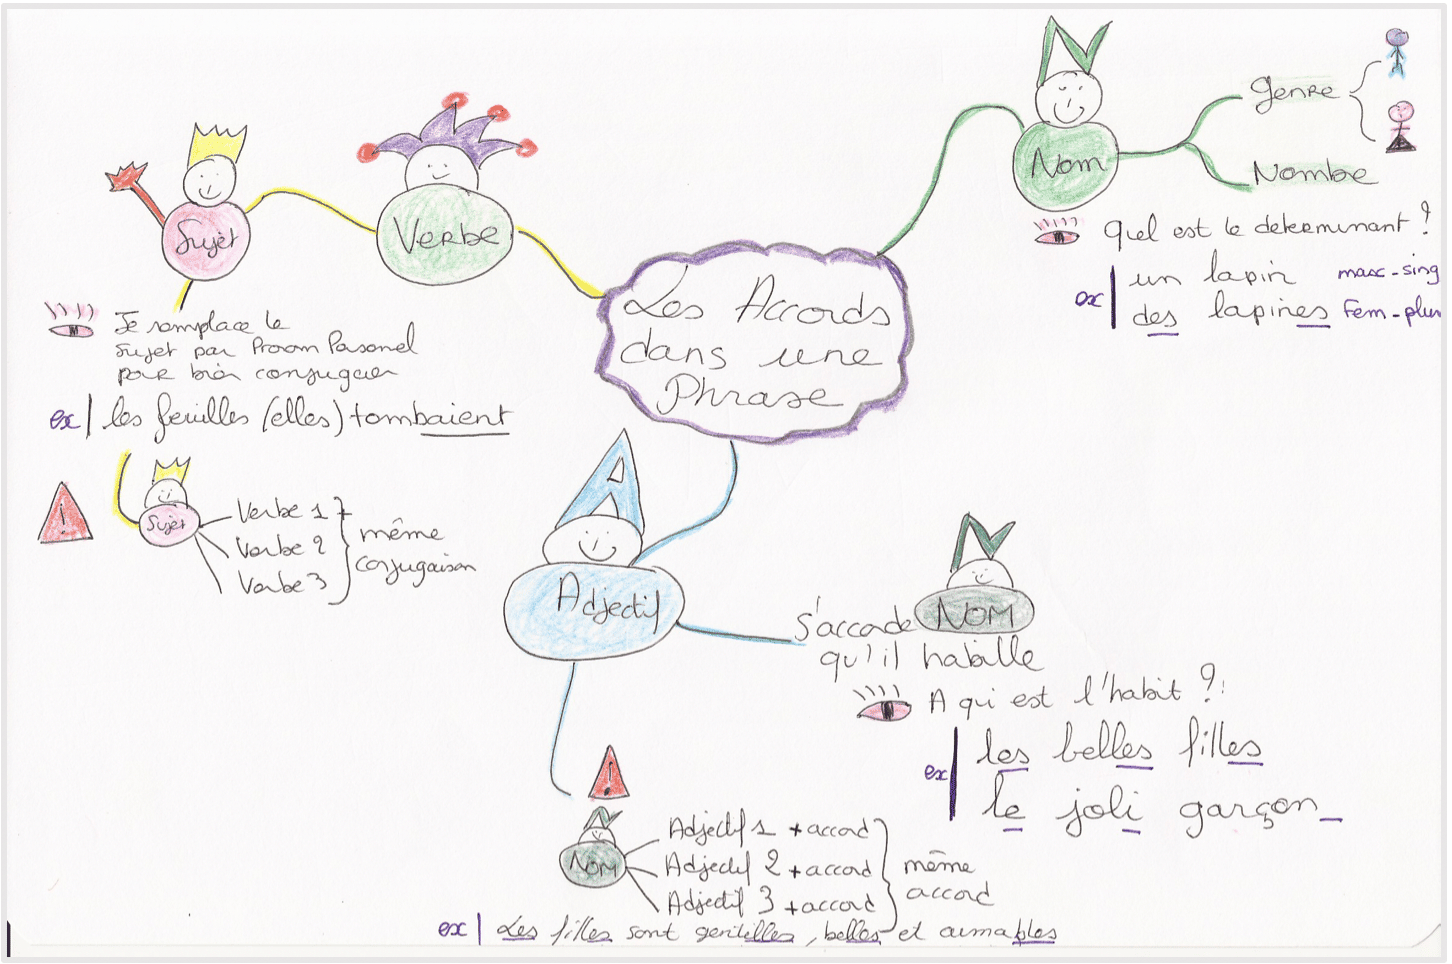 Les Accords
dans une
Phrase
Verbe
Sujet
Je remplace le
Sujet par Pronom Personel
pour bien conjuguer
ex | les feuilles (elles) tombaient
!
Sujet
Verbe 1
Verbe 2
Verbe 3
même
conjugaison
N
Nom
Genre
Nombre
Quel est le determinant ?
ex | un lapin masc-sing
des lapines Fem-plur
A
Adjectif
s'accorde
N
NOM
qu'il habille
A qui est l'habit ?
ex | les belles filles
le joli garçon
!
N
NOM
Adjectif 1 + accord
Adjectif 2 + accord
Adjectif 3 + accord
même
accord
ex | Les filles sont gentilles, belles et aimables